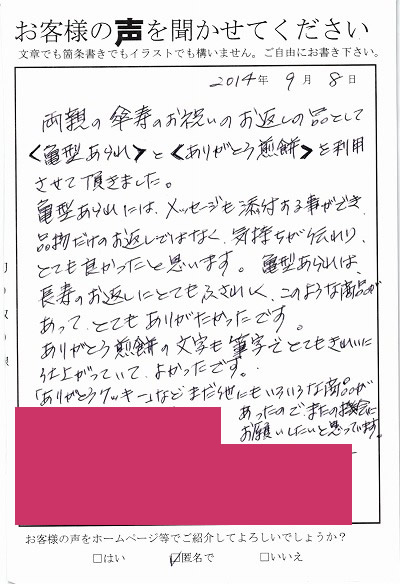 お客様の声を聞かせてください
文章でも箇条書きでもイラストでも構いません。ご自由にお書き下さい。
2014年 9月 8日
両親の傘寿のお祝いのお返しの品として
<亀型あられ>と<ありがとう煎餅>を利用
させて頂きました。
亀型あられには、メッセージも添付する事ができ、
品物だけのお返しではなく、気持ちが伝わり、
とても良かったと思います。亀型あられは、
長寿のお返しにとてもふさわしく、このような商品が
あって、とてもありがたかったです。
ありがとう煎餅の文字も筆字でとてもきれいに
仕上がっていて、よかったです。
「ありがとうクッキー」などまだ他にもいろいろな商品が
あったので、またの機会に
お願いしたいと思っています。
お客様の声をホームページ等でご紹介してよろしいでしょうか？
□はい ☑匿名で □いいえ